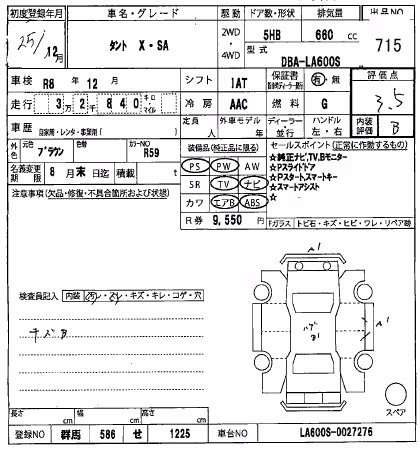 初度登録年月 車名・グレード 駆動 ドア数・形状 排気量 出品NO
25/12月 タント X・SA 2WD・4WD 5HB 660 cc 715
型式 DBA-LA600S
車検 R8年 12月 シフト IAT 保証書 有・無 評価点 3.5
走行 3万2千840 キロ・マイル 冷房 AAC 燃料 G 内装評価 B
車歴 自家用・レンタ・事業用( ) 定員 人 外車モデル 年 ディーラー・並行 ハンドル 左・右
外色 元色 ブラウン 色替 カラーNO R59
名義変更期限 8月末日迄 積載 t
装備品(純正品に限る)
PS PW AW
SR TV ナビ
カワ エアB ABS
R券 9,550円
セールスポイント(正常に作動するもの)
☆純正ナビ,TV,Bモニター
☆Pスライドドア
☆Pスタート,スマートキー
☆スマートアシスト
☆
Fガラス トビ石・キズ・ヒビ・ワレ・リペア跡
注意事項(欠品・修復・不具合箇所および状態)
検査員記入 内装 汚レ・スレ・キズ・キレ・コゲ・穴
A1
A1
B1
スペア
長さ cm 幅 cm 高さ cm
登録NO 群馬 586 せ 1225 車台NO LA600S-0027276